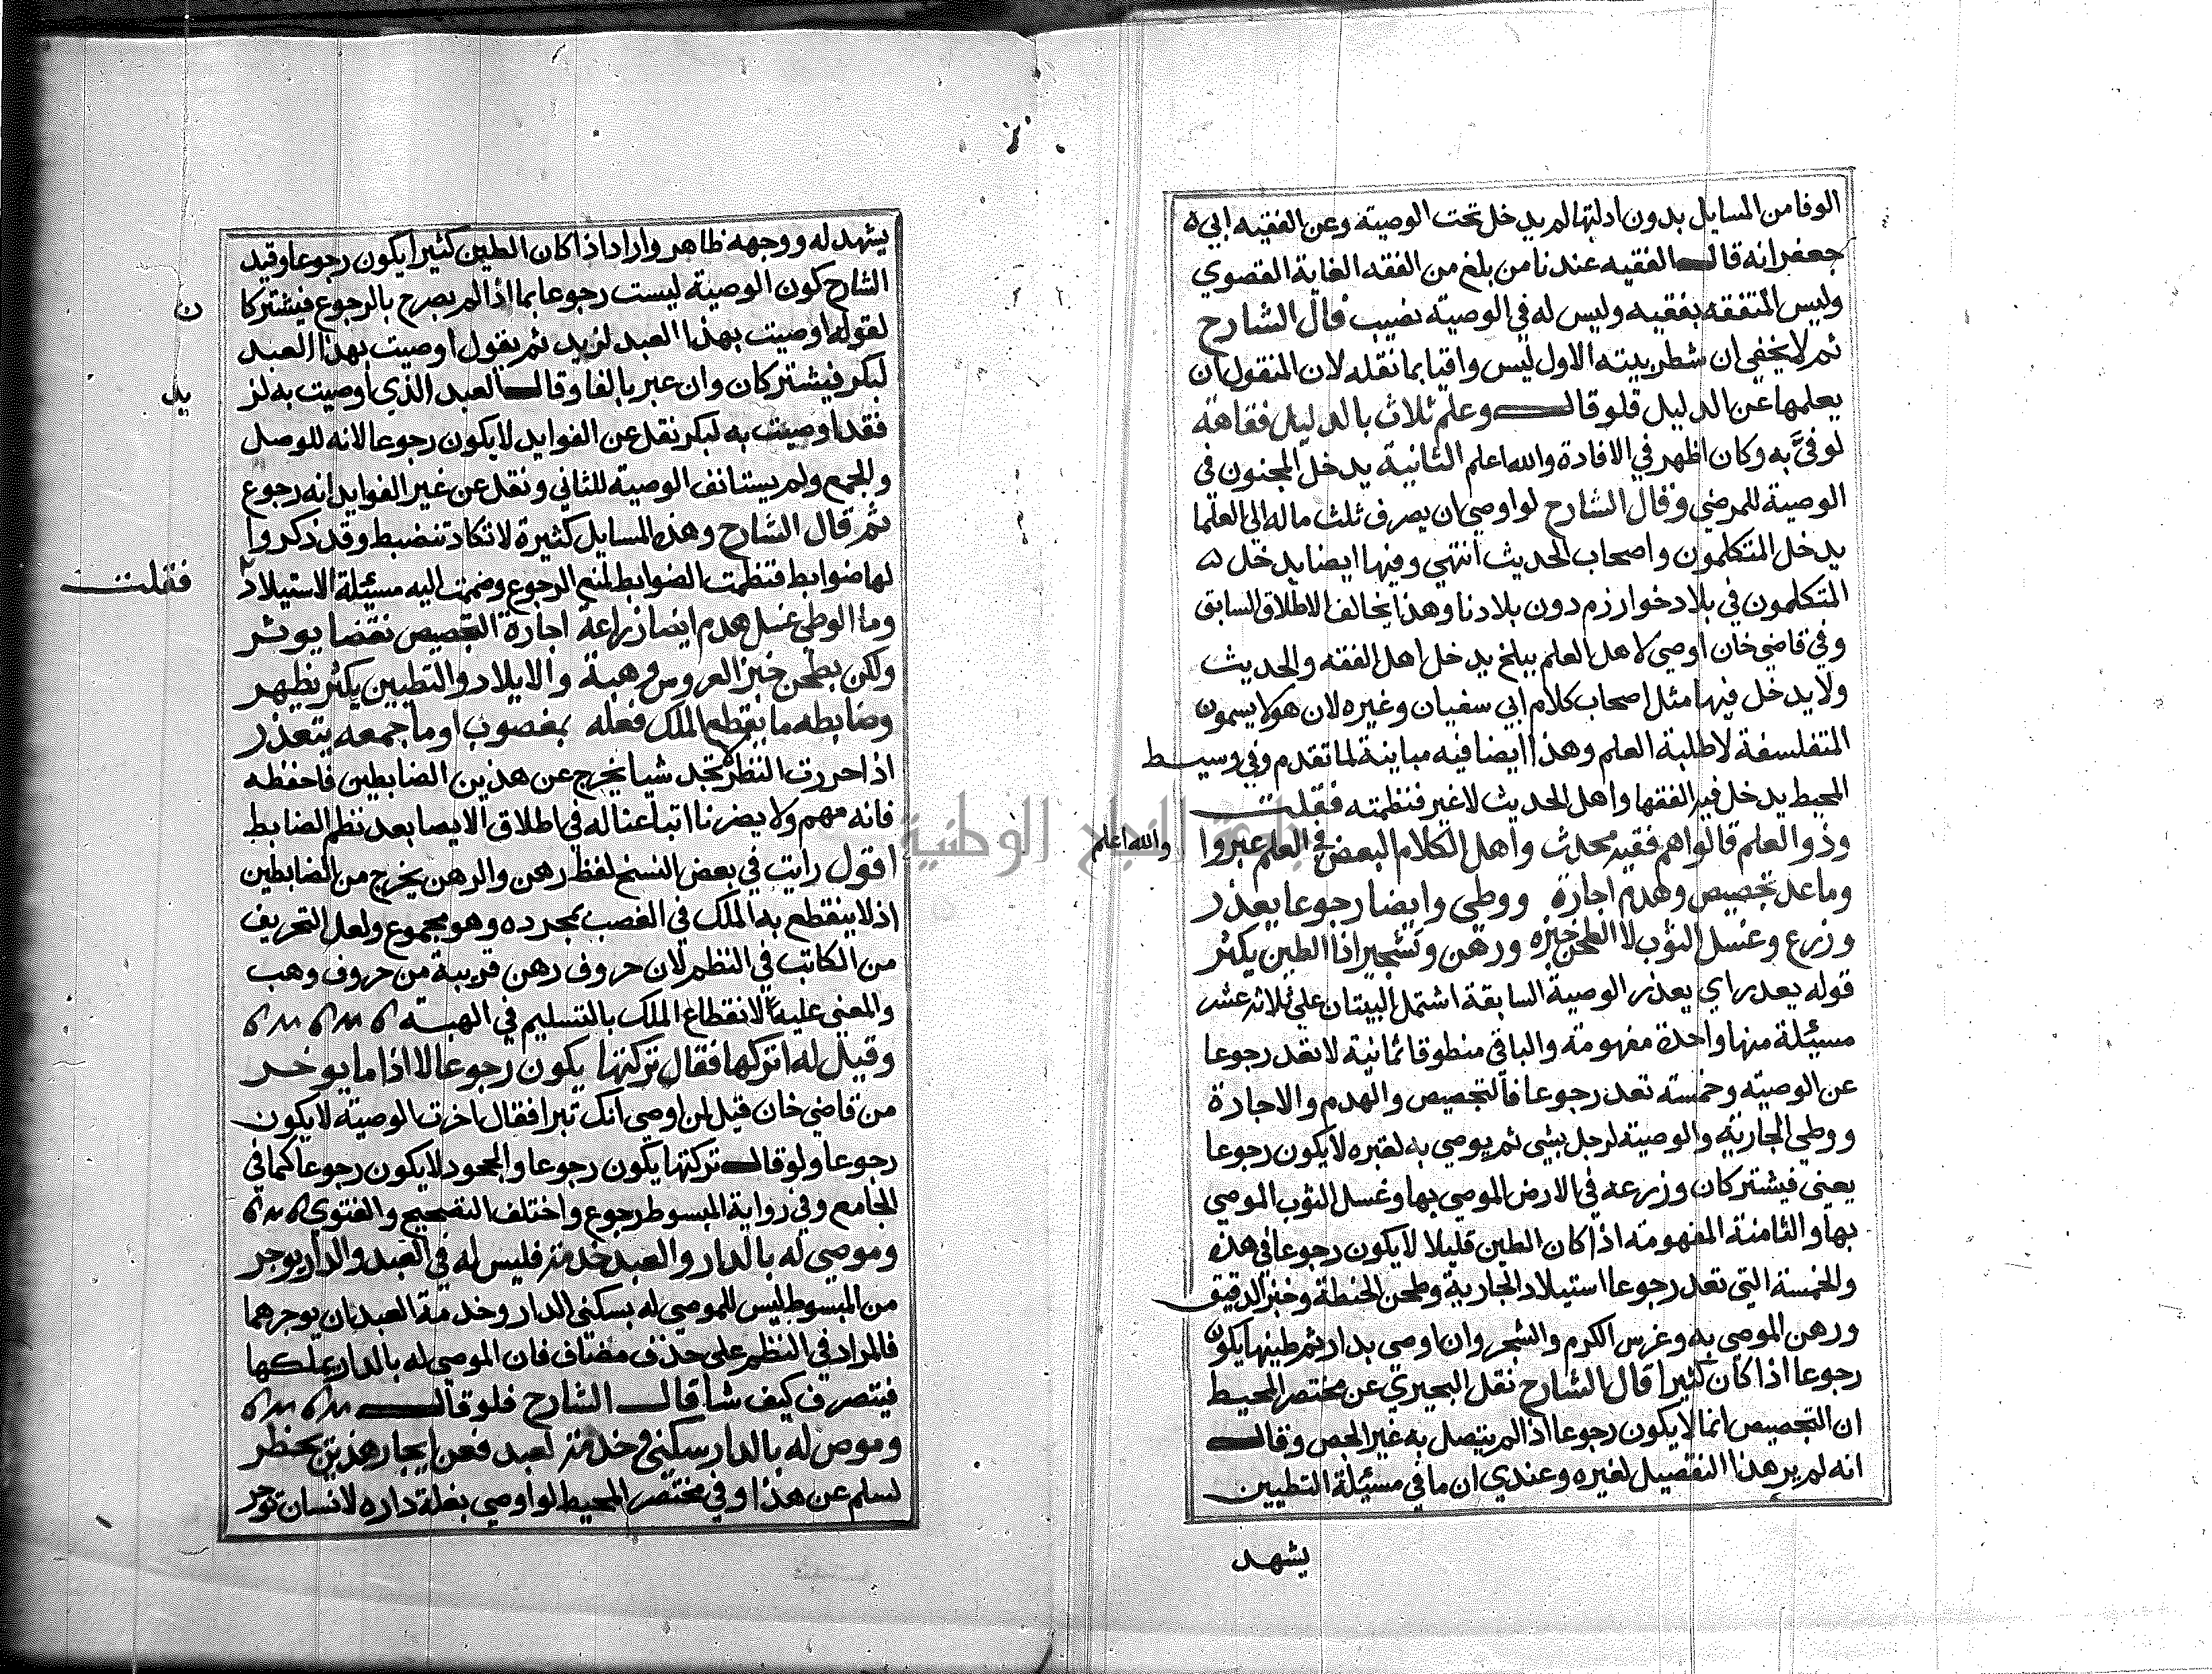 الوفا من المسايل بدون ادلتها لم يدخل تحت الوصية وعن الفقيه ابي
جعفر انه قال الفقيه عندنا من بلغ من الفقه الغاية القصوي
وليس المتفقه بفقيه وليس له في الوصية نصيب قال الشارح
ثم لا يخفي ان شطر بيته الاول ليس وافيا بما نقله لان المنقول ان
يعلمها عن الدليل فلو قال وعلم ثلاث بالدليل فقاهة
لو فيَّ به وكان اظهر في الافادة والله اعلم الثانية يدخل المجنون في
الوصية للمرضي وقال الشارح لو اوصي ان يصرف ثلث ماله الي العلما
يدخل المتكلمون واصحاب الحديث انتهي وفيها ايضا يدخل
المتكلمون في بلاد خوارزم دون بلادنا وهذا يخالف الاطلاق السابق
وفي قاضي خان اوصي لاهل العلم ببلخ يدخل اهل الفقه والحديث
ولا يدخل فيها مثل اصحاب كلام ابي سفيان وغيره لان هولا يسمون
المتفلسفة لا طلبة العلم وهذا ايضا فيه مباينة لما تقدم وفي وسيط
المحيط يدخل فيه الفقها واهل الحديث لا غير فنظمته فقلت
وذو العلم قالوا هم فقيه محدث واهل الكلام البعض في العلم عبروا والله اعلم
وما عد تجصيص وهدم اجارة ووطي وايضا رجوعا يعذر
وزرع وغسل الثوب لا الطحن خبزه ورهن وتشجير اذا الطين يكثر
قوله يعدر اي يعذر الوصية السابقة اشتمل البيتان علي ثلاثه عشر
مسئلة منها واحدة مفهومة والباقي منطوقا ثمانية لا تعد رجوعا
عن الوصية وخمسة تعد رجوعا فالتجصيص والهدم والاجارة
ووطي الجارية والوصية لرجل بشي ثم يوصي به لغيره لا يكون رجوعا
يعني فيشتركان وزرعه في الارض الموصي بها وغسل الثوب الموصي
بها والثامنة المفهومة اذا كان الطين قليلا لا يكون رجوعا في هذه
والخمسة التي تعد رجوعا استيلاد الجارية وطحن الحنطة وخبز الدقيق
ورهن الموصي به وغرس الكرم والشجر وان اوصي بدار ثم طينها يكون
رجوعا اذا كان كثيرا قال الشارح نقل البحيري عن مختصر المحيط
ان التجصيص انما لا يكون رجوعا اذا لم يتصل به غير الجص وقال
انه لم ير هذا التفصيل لغيره وعندي ان ما في مسئلة التطيين
يشهد
يشهد له ووجهه ظاهر واراد اذا كان الطين كثيرا يكون رجوعا وقيد
الشارح كون الوصية ليست رجوعا بما اذا لم يصرح بالرجوع فيشتركا ن
لقوله اوصيت بهذا العبد لزيد ثم يقول اوصيت بهذا العبد
لبكر فيشتركان وان عبر بالفا وقال العبد الذي اوصيت به لز يد
فقد اوصيت به لبكر نقل عن الفوايد لا يكون رجوعا لانه للوصل
والجمع ولم يستانف الوصية للثاني ونقل عن غير الفوايد انه رجوع
ثم قال الشارح وهذه المسايل كثيرة لا تكاد تنضبط وقد ذكروا
لها ضوابط فنظمت الضوابط لمنع الرجوع وضممت اليه مسئلة الاستيلاد فقلت
وما الوطي غسل هدم ايضا زراعة اجارة التجصيص نقضا يوثر
ولكن بطحن خبز العروس وهبة والايلاد والتطيين يكثر يظهر
وضابطه ما يقطع الملك فعله بمغصوب او ما جمعه يتعذر
اذا حررت النظر لا تجد شيا يخرج عن هذين الضابطين فاحفظه
فانه مهم ولا يضرنا اتباعنا له في اطلاق الايصا بعد نظم الضابط
اقول رايت في بعض النسخ لفظ رهن والرهن يخرج من الضابطين
اذ لا ينقطع به الملك في الغصب بمجرده وهو مجموع ولعل التحريف
من الكاتب في النظم لان حروف رهن قريبة من حروف وهب
والمعني عليه لانقطاع الملك بالتسليم في الهبة
وقيل له اتركها فقال تركتها يكون رجوعا لا اذا ما يوخر
من قاضي خان قيل لمن اوصي انك تبرا فقال اخرت الوصية لا يكون
رجوعا ولو قال تركتها يكون رجوعا والجحود لا يكون رجوعا كما في
الجامع وفي رواية المبسوط رجوع واختلف التصحيح والفتوي
وموصي له بالدار والعبد خدمة فليس له في العبد والدار يوجر
من المبسوط ليس للموصي له بسكني الدار وخدمة العبد ان يوجرهما
فالمراد في النظم علي حذف مضاف فان الموصي له بالدار يملكها
فيتصرف كيف شا قال الشارح فلو قال
وموص له بالدار سكني وخدمة لعبد فعن ايجار هذين يحظر
لسلم عن هذا وفي مختصر المحيط لو اوصي بغلة داره لانسان توجر